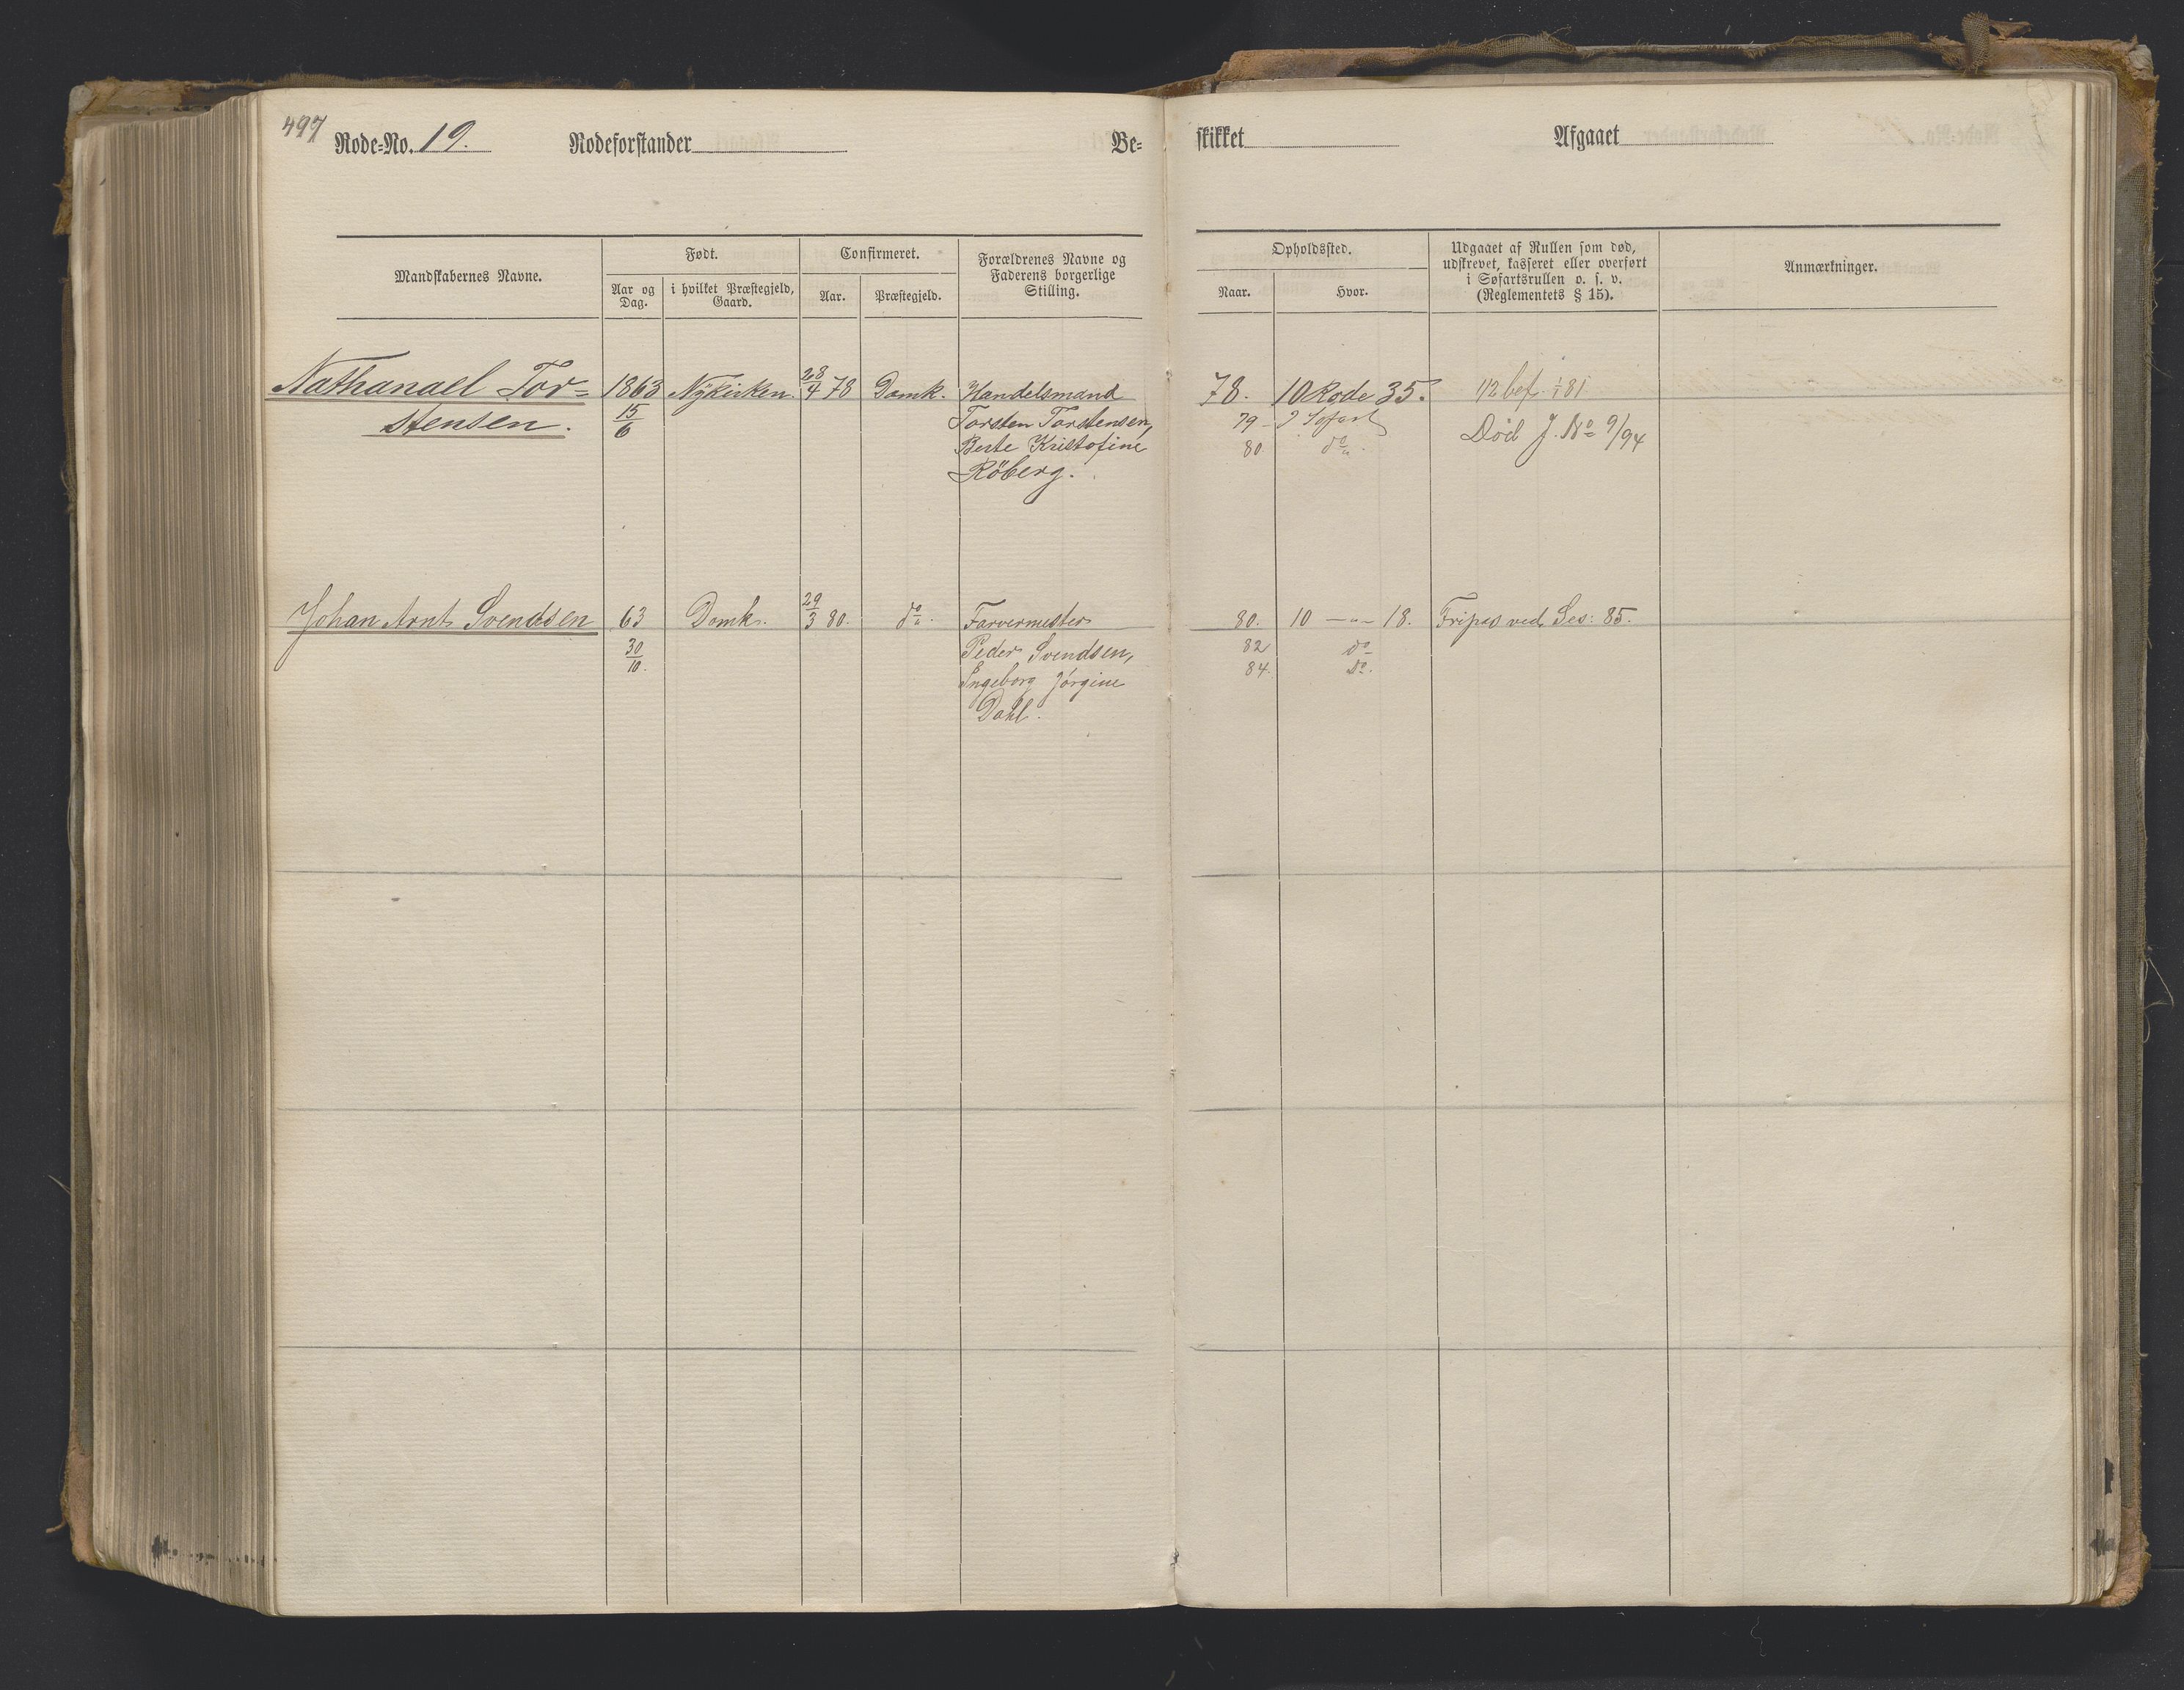 497
Rode-No. 19. Rodeforstander Be-
skikket Afgaaet
Mandskabernes Navne.
Født.
Aar og
Dag.
i hvilket Præstegjeld,
Gaard.
Confirmeret.
Aar.
Præstegjeld.
Forældrenes Navne og
Faderens borgerlige
Stilling.
Opholdssted.
Naar.
Hvor.
Udgaaet af Rullen som død,
udskrevet, kasseret eller overført
i Søfartsrullen o. s. v.
(Reglementets § 15).
Anmærkninger.
Nathanael Tor=
stensen.
1863
15/6
Nykirken.
28/4 78
Domk.
Handelsmand
Torsten Torstensen,
Berte Kristofine
Röberg.
78. 10 Rode 35.
79 - Sofart
80 do
1/2 bef. 1/1 81.
Död J. No 9/94
Johan Arnt Svendsen
63
30/10.
Domk.
29/3 80.
do.
Farvermester
Peder Svendsen,
Ingeborg Jörgine
Dahl.
80. 10 —"— 18.
82 do
84. do.
Fripas ved Ses: 85.